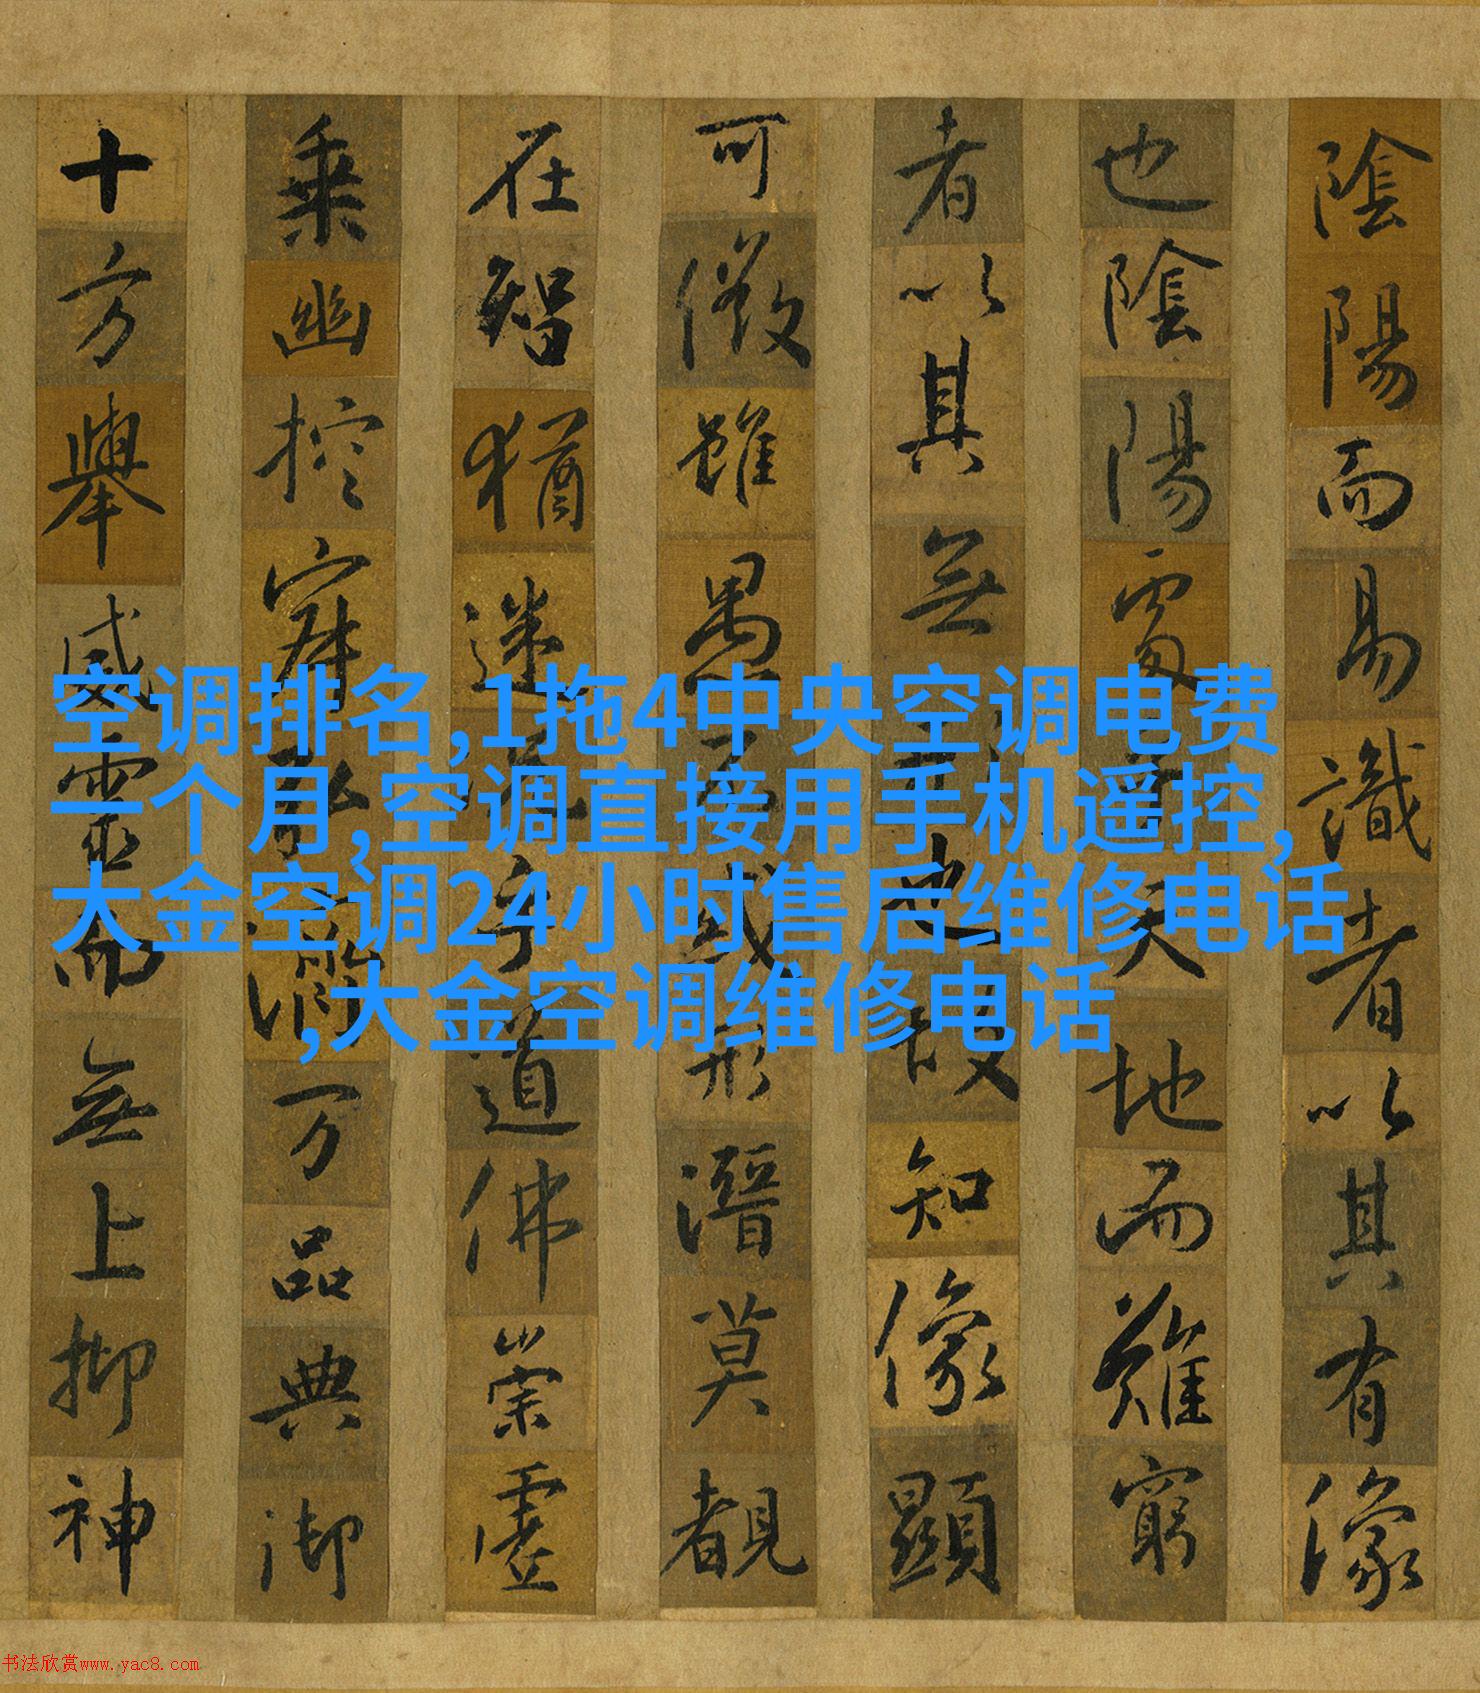 陰陽而易識者以其有像
也陰陽處乎天地而難窮
者以其無形也故知像顯
可徵雖愚不惑形潛莫覩
在智猶迷況乎道佛崇虛
乘幽控寂弘濟万品典御
十方舉威靈而無上抑神
空调排名,1拖4中央空调电费
一个月,空调直接用手机遥控,
大金空调24小时售后维修电话
,大金空调维修电话
书法欣赏www.yac8.com